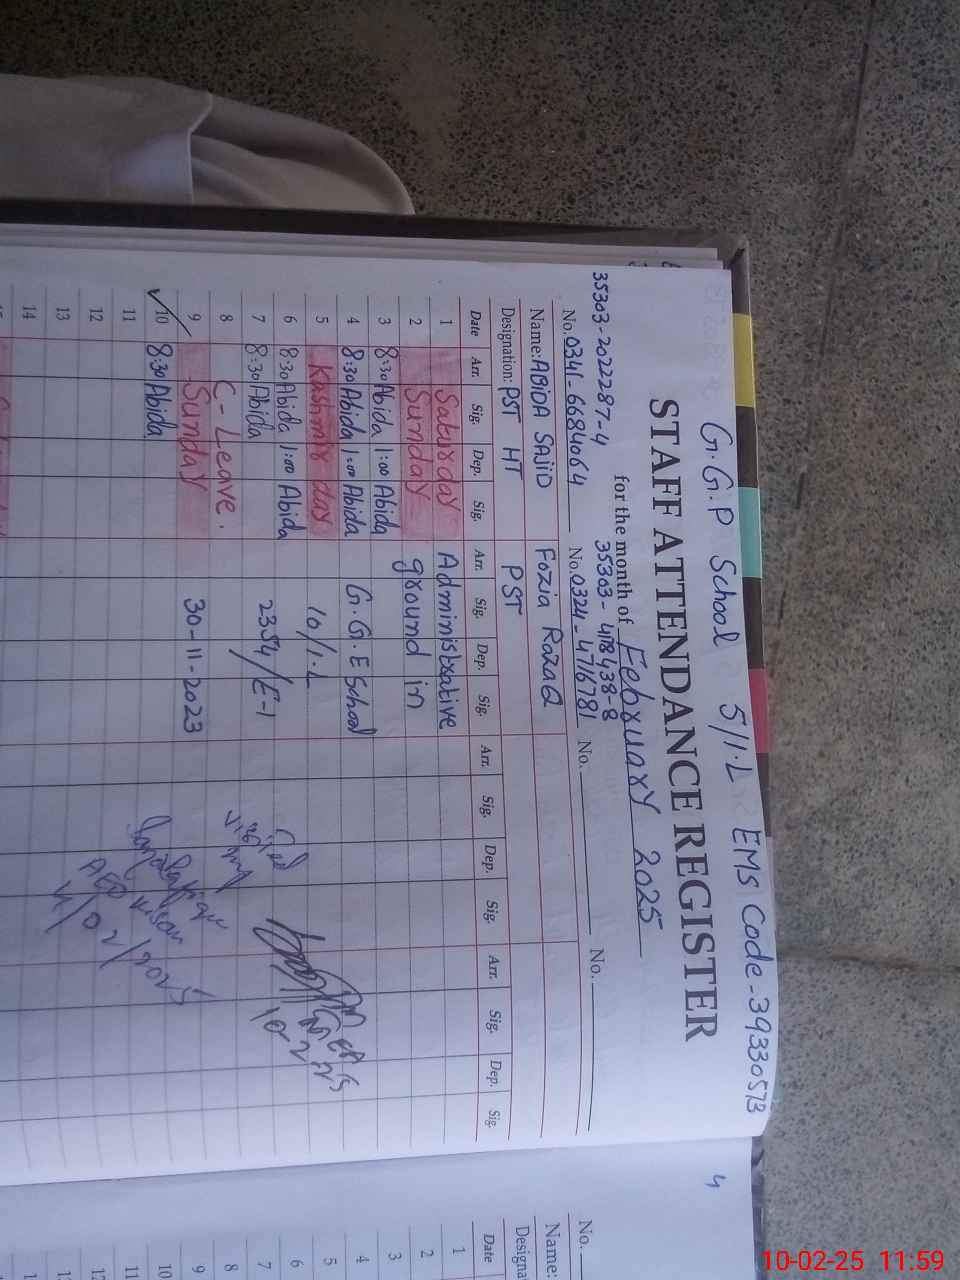 G.G.P School 5/1.L EMS Code-39330573
4
STAFF ATTENDANCE REGISTER
for the month of February 2025
35303-2022287-4 35303-478438-8
No. 0341-6684064 No. 0324-4716781 No. No.
Name: ABIDA SAJID Fozia RazaQ
Designation: PST HT PST
Date Arr. Sig. Dep. Sig. Arr. Sig. Dep. Sig. Arr. Sig. Dep. Sig. Arr. Sig. Dep. Sig.
1 Saturday Administrative
2 Sunday ground in
3 8:30 Abida 1:00 Abida
4 8:30 Abida 1:00 Abida G.G.E School
5 Kashmir day 10/1.L
6 8:30 Abida 1:00 Abida
7 8:30 Abida 2354/E-1
8 C-Leave.
9 Sunday 30-11-2023
10 8:30 Abida
11
12
13
14
Visited
AEO
10-2-25
No.
Name:
Designa
Date
1
2
3
4
5
6
7
8
9
10
11
12
10-02-25 11:59